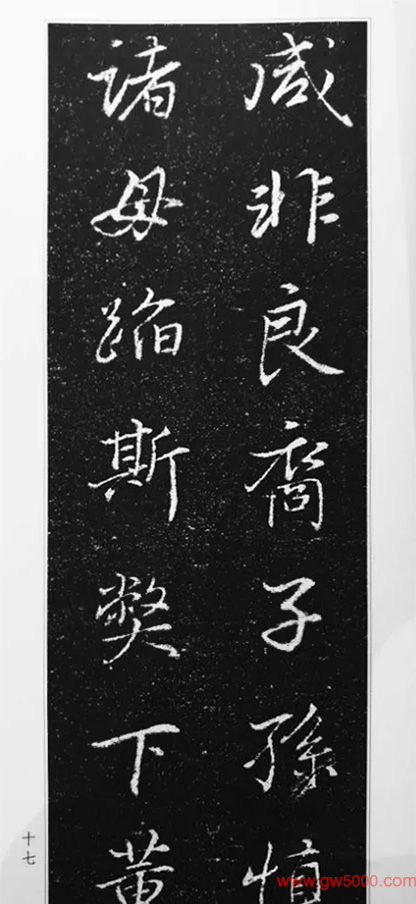 咸非良裔子孫慎
諸毋蹈斯弊下黄
十七
www.gw5000.com